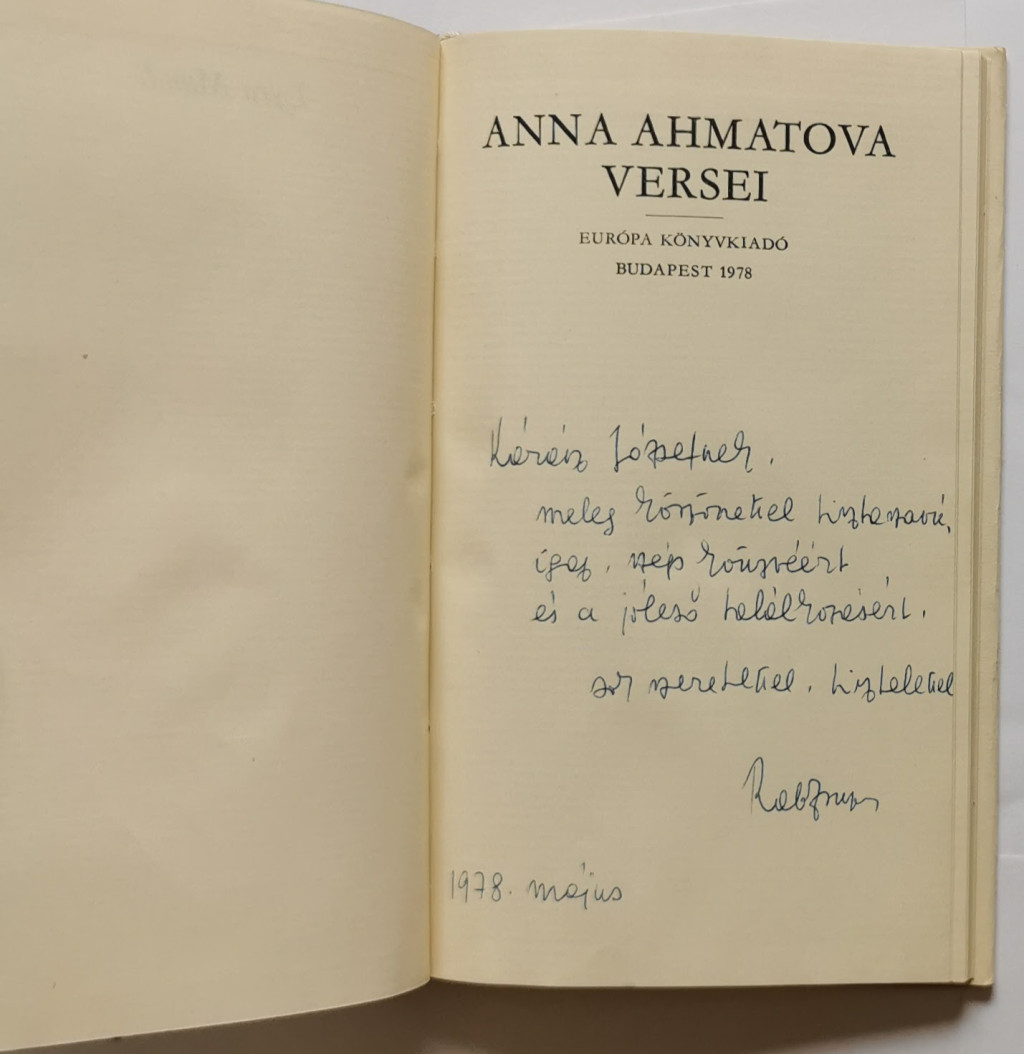 ANNA AHMATOVA
VERSEI
EURÓPA KÖNYVKIADÓ
BUDAPEST 1978
Kárász Józsefnek,
meleg köszönettel tisztaszavú,
igaz, szép könyvéért
és a jóleső találkozásért,
sok szeretettel, tisztelettel
Rab Zsuzsa
1978. május